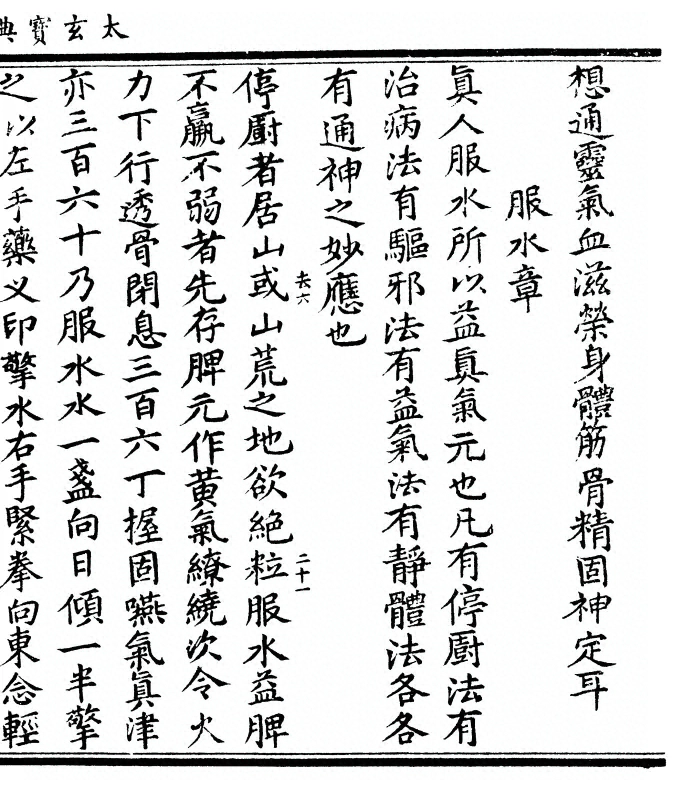 太玄寶典
想通靈氣血滋榮身體筋骨精固神定耳
服水章
眞人服水所以益眞氣元也凡有停廚法有
治病法有驅邪法有益氣法有靜體法各各
有通神之妙應也
去六
二十一
停廚者居山或山荒之地欲絶粒服水益脾
不羸不弱者先存脾元作黄氣繚繞次令火
力下行透骨閉息三百六丁握固嚥氣眞津
亦三百六十乃服水水一盞向日傾一半擎
之以左手藥乂印擎水右手緊拳向東念輕